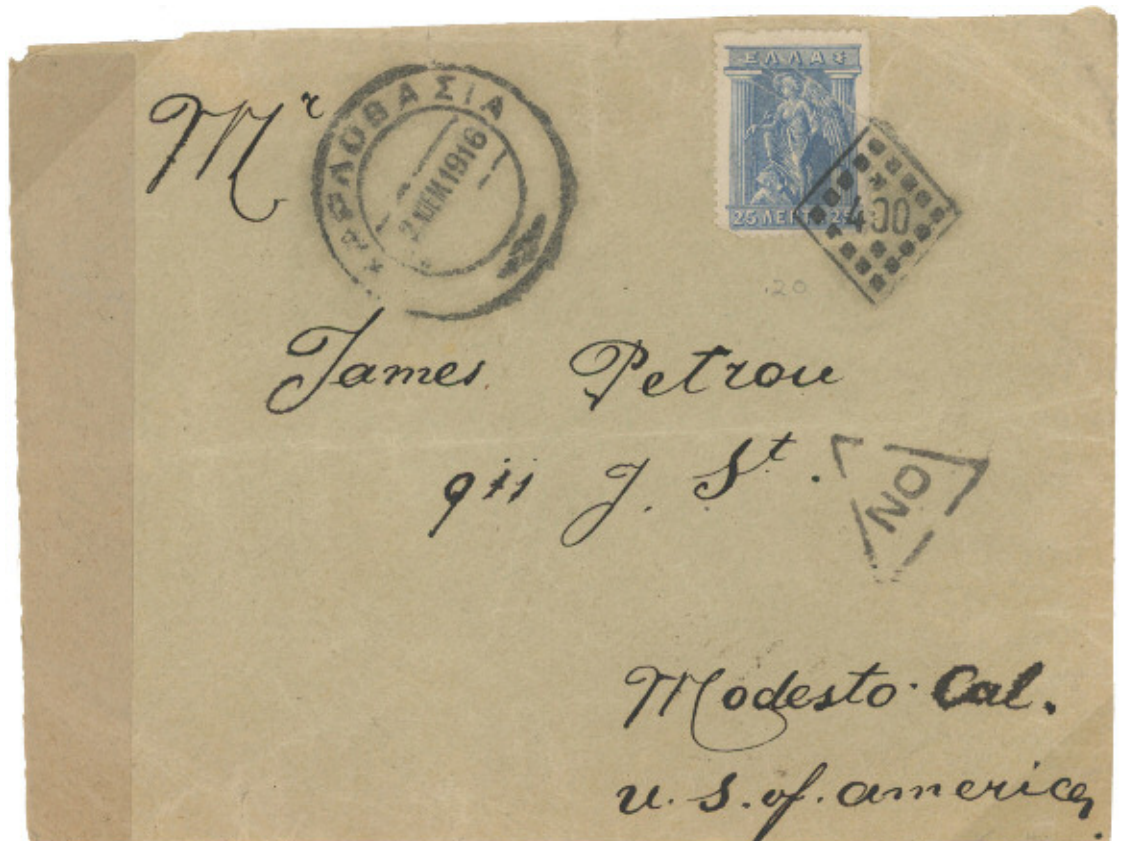 Mr
ΚΑΡΛΟΒΑΣΙΑ
ΔΕΚ 1916
ΕΛΛΑΣ
25 ΛΕΠΤ 25
400
.20
James Petrou
911 J. St.
NO
Modesto Cal.
U. S. of. america